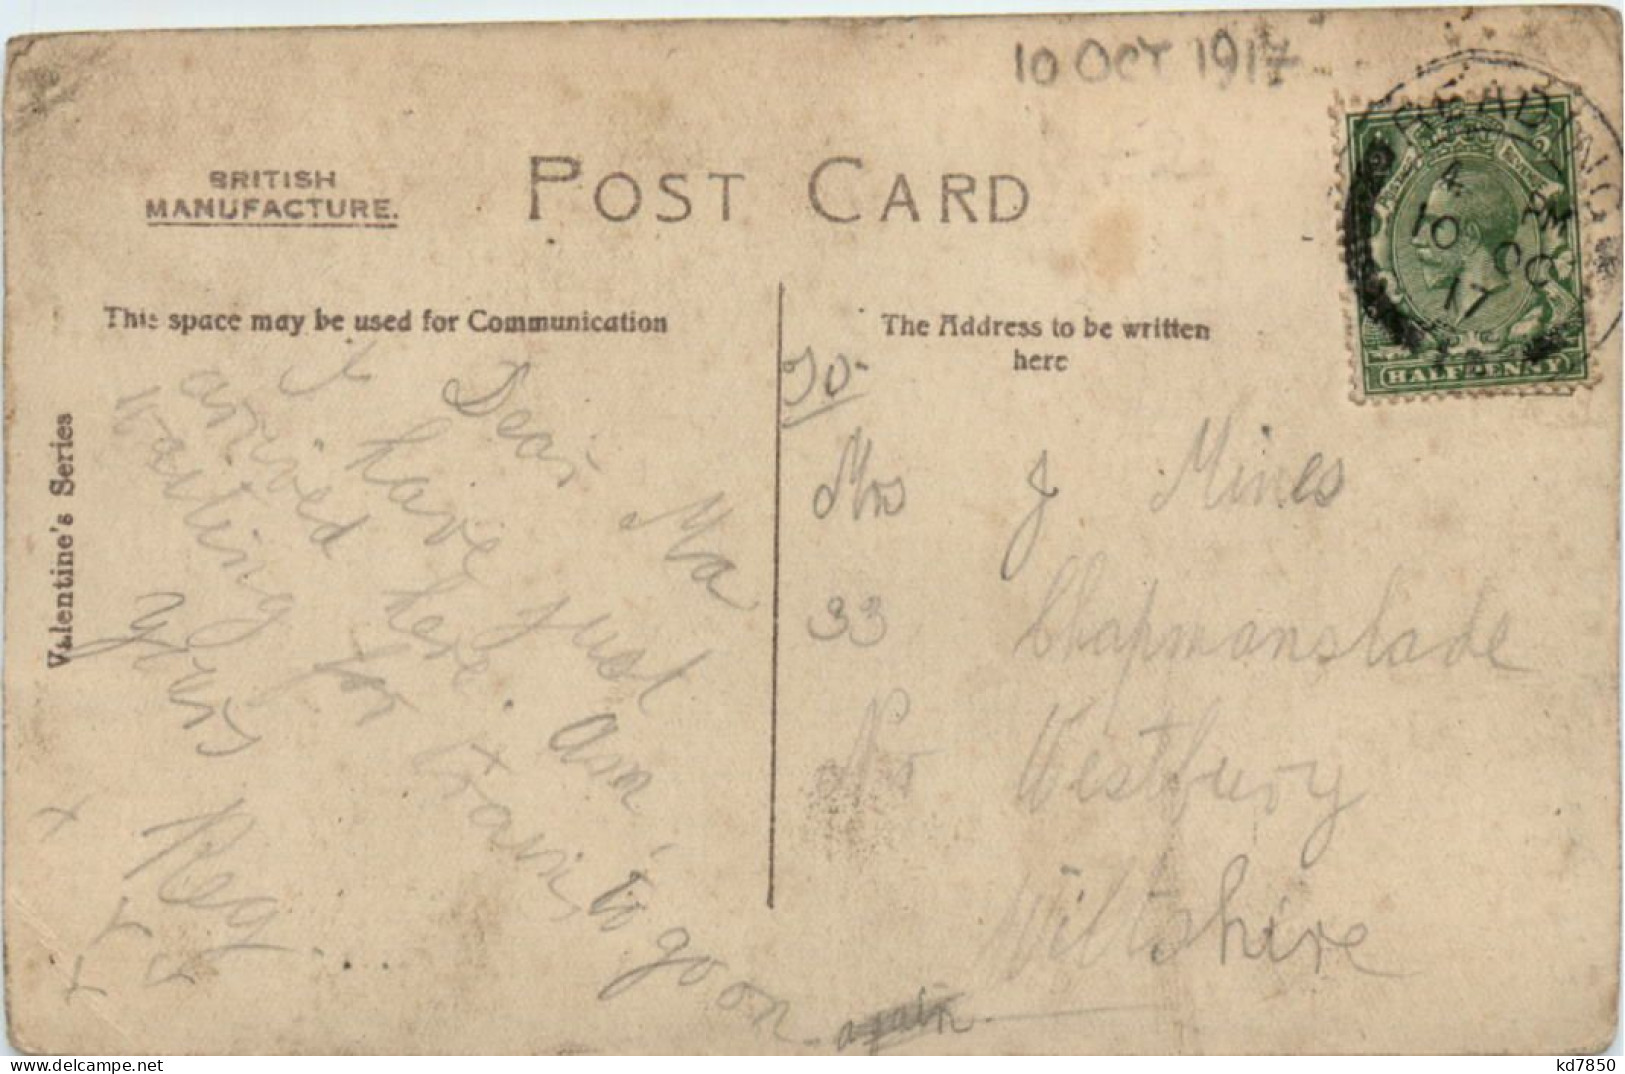 10 OCT 1917
BRITISH
MANUFACTURE.
POST CARD
READING
4 PM
10 OC
17
HALFPENNY
This space may be used for Communication
The Address to be written
here
Valentine's Series
Dear Ma
I have just
arrived here. am
waiting for train to go on
again
yours
Reg....
To-
Mrs J Mines
33 Chapmanslade
Nr Westbury
Wiltshire
kd7850